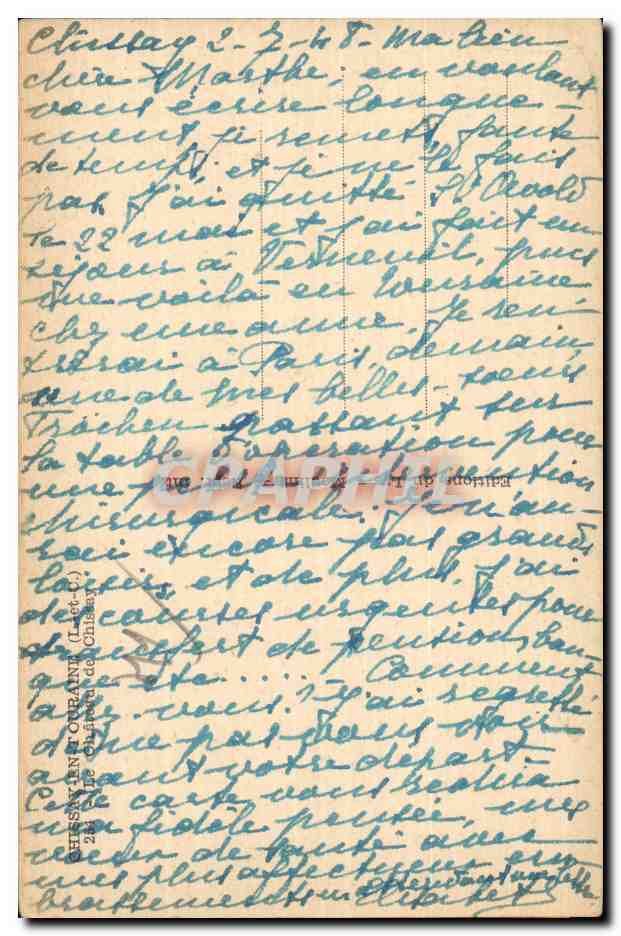 Chissay 2-7-48 - Ma bien
chère Marthe, en voulant
vous écrire longue-
ment je remets faute
de temps, et je ne le fais
pas. J'ai quitté St Avold
le 22 mai et j'ai fait un
séjour à Verneuil, puis
me voilà en Touraine
chez une amie. Je ren-
trerai à Paris, demain,
une de mes belles-sœurs
Trochen passant sur
la table d'opération pour
une intervention
chirurgicale. Je n'au-
rai encore pas grands
loisirs et de plus, j'ai
des courses urgentes pour
transfert de pension, ban-
que etc..... Comment
allez-vous? J'ai regretté
de ne pas vous voir
avant votre départ
Cette carte vous redira
ma fidèle pensée, mes
vœux de santé avec
mes plus affectueux em-
brassements
CHISSAY-EN-TOURAINE (L.-et-C.)
251 - Le Château de Chissay
Editions du
CPAPHIL